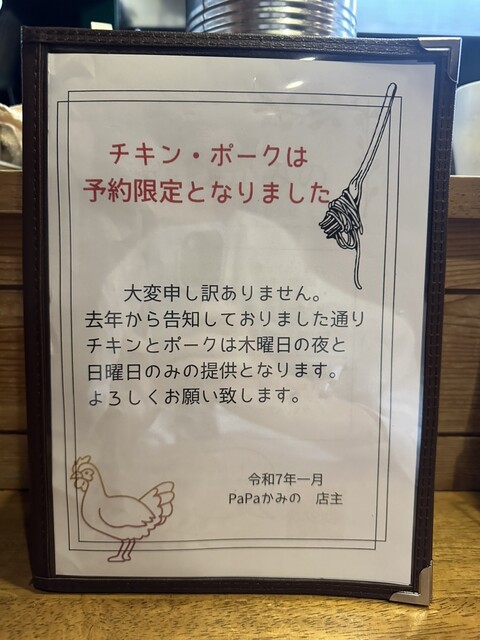 チキン・ポークは
予約限定となりました
大変申し訳ありません。
去年から告知しておりました通り
チキンとポークは木曜日の夜と
日曜日のみの提供となります。
よろしくお願い致します。
令和7年一月
PaPaかみの　店主